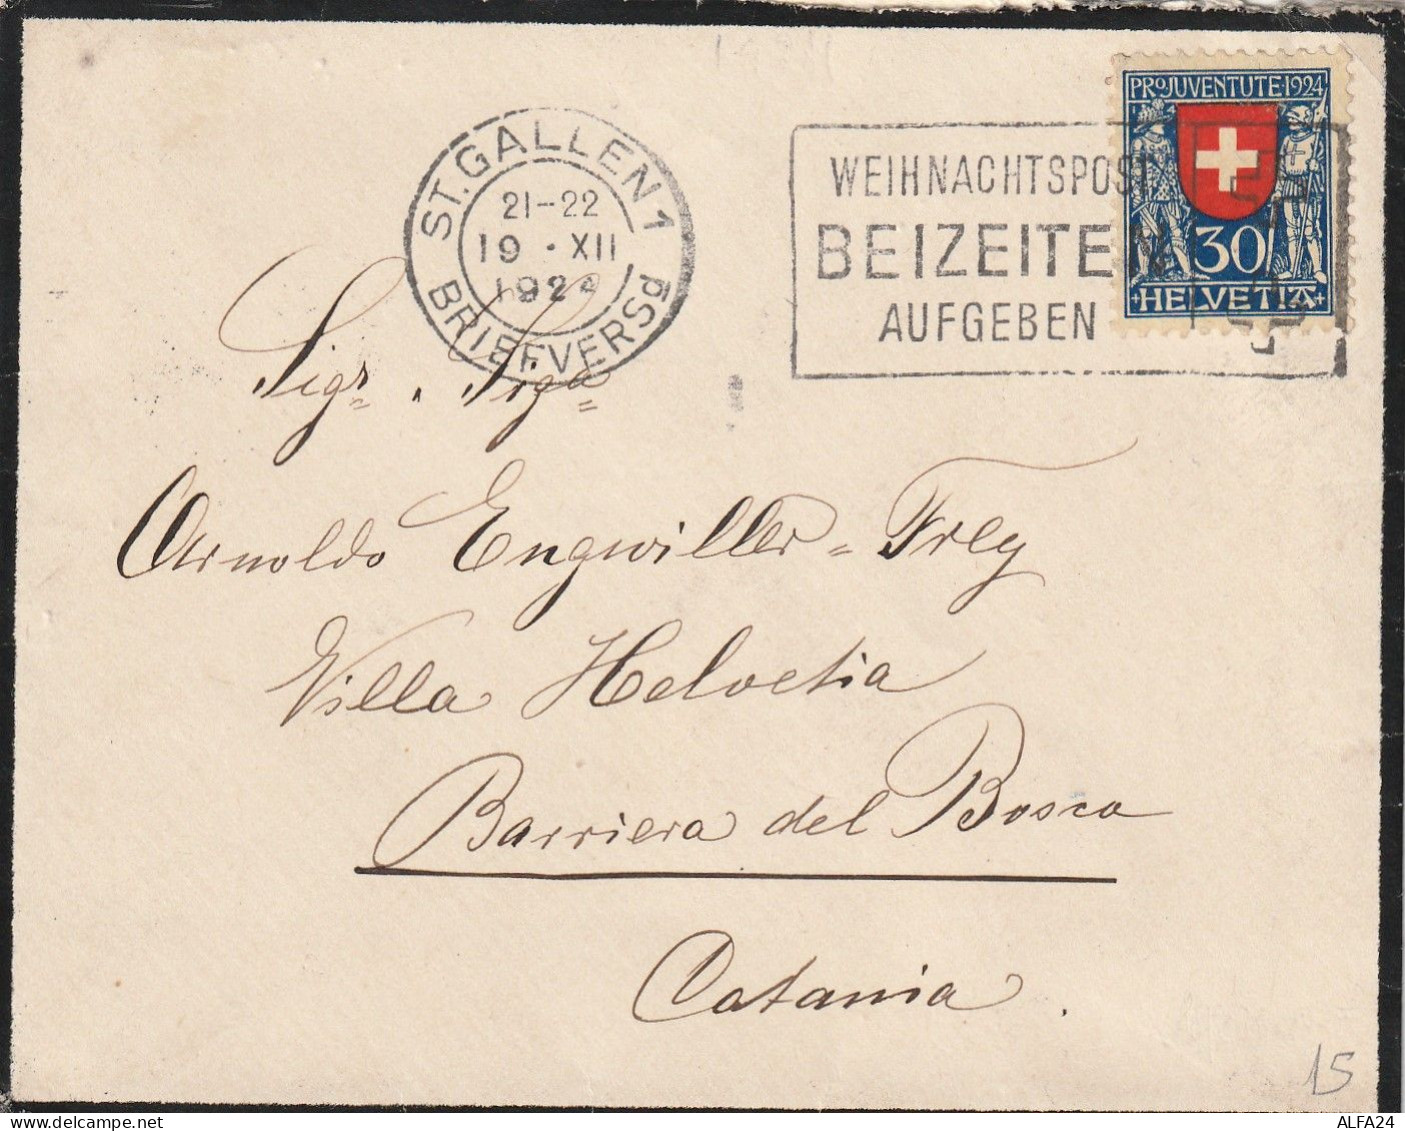 PRO JUVENTUTE·1924
30
+HELVETIA+
ST. GALLEN 1
21–22
19 · XII
1924
BRIEFVERSd
WEIHNACHTSPOST
BEIZEITEN
AUFGEBEN
Sigr. Siga
Arnoldo Engwiller=Frey
Villa Helvetia
Barriera del Bosco
Catania.
15
ALFA24